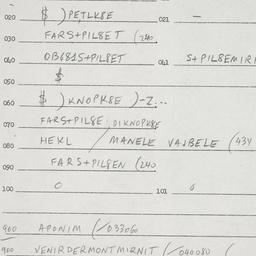 020 $ ) PETLK8E 021 —
030 FARS+PIL8ET (240
040 OB6815+PIL8ET 041 S+PIL8EMIRI
050 $
060 $ ) KNOPK8E ) -Z...
070 FARS+PIL8E DIKNOPK8E
080 HEKL / MANELE VAJBELE (434
090 FARS+PIL8EN (240
100 0 101 0
900 APONIM (/033060
900 VENIRDERMONTMIRNIT (/040080 (